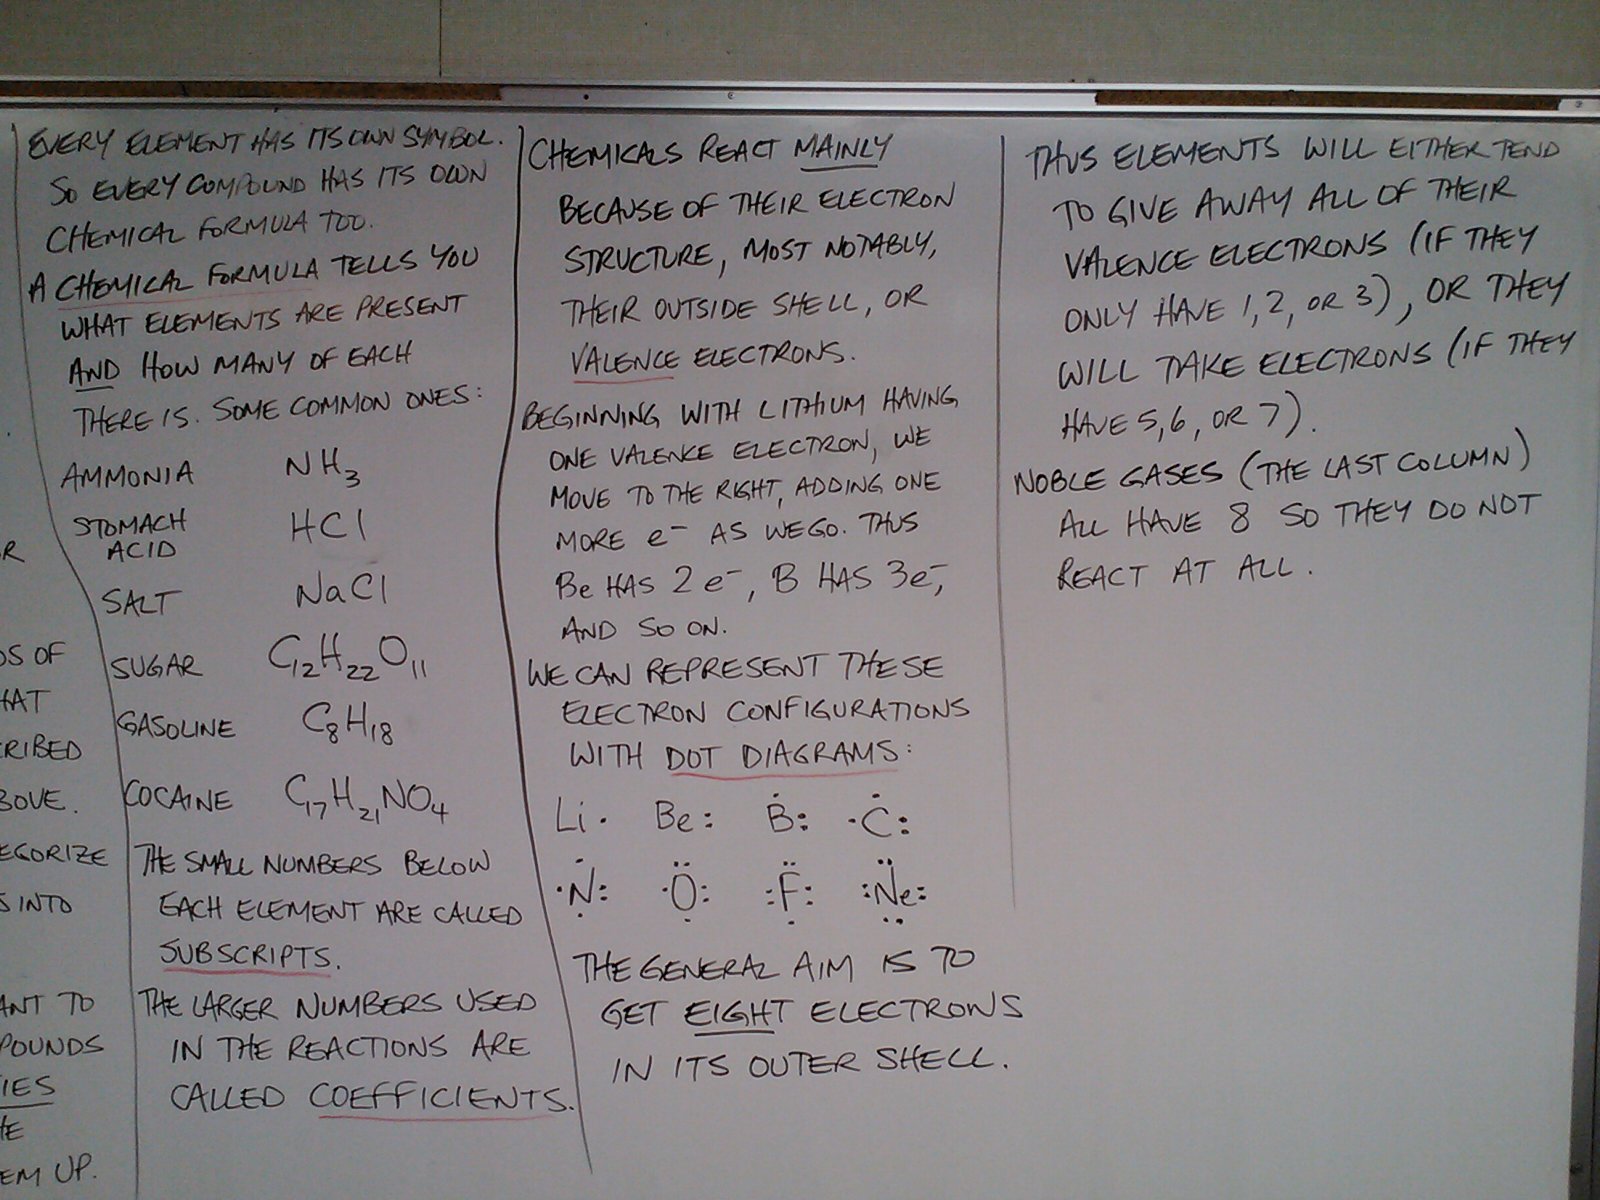 R
DS OF
HAT
CRIBED
BOVE.
EGORIZE
S INTO
ANT TO
POUNDS
IES
HE
EM UP.
EVERY ELEMENT HAS ITS OWN SYMBOL.
SO EVERY COMPOUND HAS ITS OWN
CHEMICAL FORMULA TOO.
A CHEMICAL FORMULA TELLS YOU
WHAT ELEMENTS ARE PRESENT
AND HOW MANY OF EACH
THERE IS. SOME COMMON ONES:
AMMONIA NH₃
STOMACH ACID HCl
SALT NaCl
SUGAR C₁₂H₂₂O₁₁
GASOLINE C₈H₁₈
COCAINE C₁₇H₂₁NO₄
THE SMALL NUMBERS BELOW
EACH ELEMENT ARE CALLED
SUBSCRIPTS.
THE LARGER NUMBERS USED
IN THE REACTIONS ARE
CALLED COEFFICIENTS.
CHEMICALS REACT MAINLY
BECAUSE OF THEIR ELECTRON
STRUCTURE, MOST NOTABLY,
THEIR OUTSIDE SHELL, OR
VALENCE ELECTRONS.
BEGINNING WITH LITHIUM HAVING
ONE VALENCE ELECTRON, WE
MOVE TO THE RIGHT, ADDING ONE
MORE e⁻ AS WE GO. THUS
Be HAS 2 e⁻, B HAS 3e⁻,
AND SO ON.
WE CAN REPRESENT THESE
ELECTRON CONFIGURATIONS
WITH DOT DIAGRAMS:
Li Be B C
N O F Ne
THE GENERAL AIM IS TO
GET EIGHT ELECTRONS
IN ITS OUTER SHELL.
THUS ELEMENTS WILL EITHER TEND
TO GIVE AWAY ALL OF THEIR
VALENCE ELECTRONS (IF THEY
ONLY HAVE 1, 2, OR 3), OR THEY
WILL TAKE ELECTRONS (IF THEY
HAVE 5, 6, OR 7).
NOBLE GASES (THE LAST COLUMN)
ALL HAVE 8 SO THEY DO NOT
REACT AT ALL.